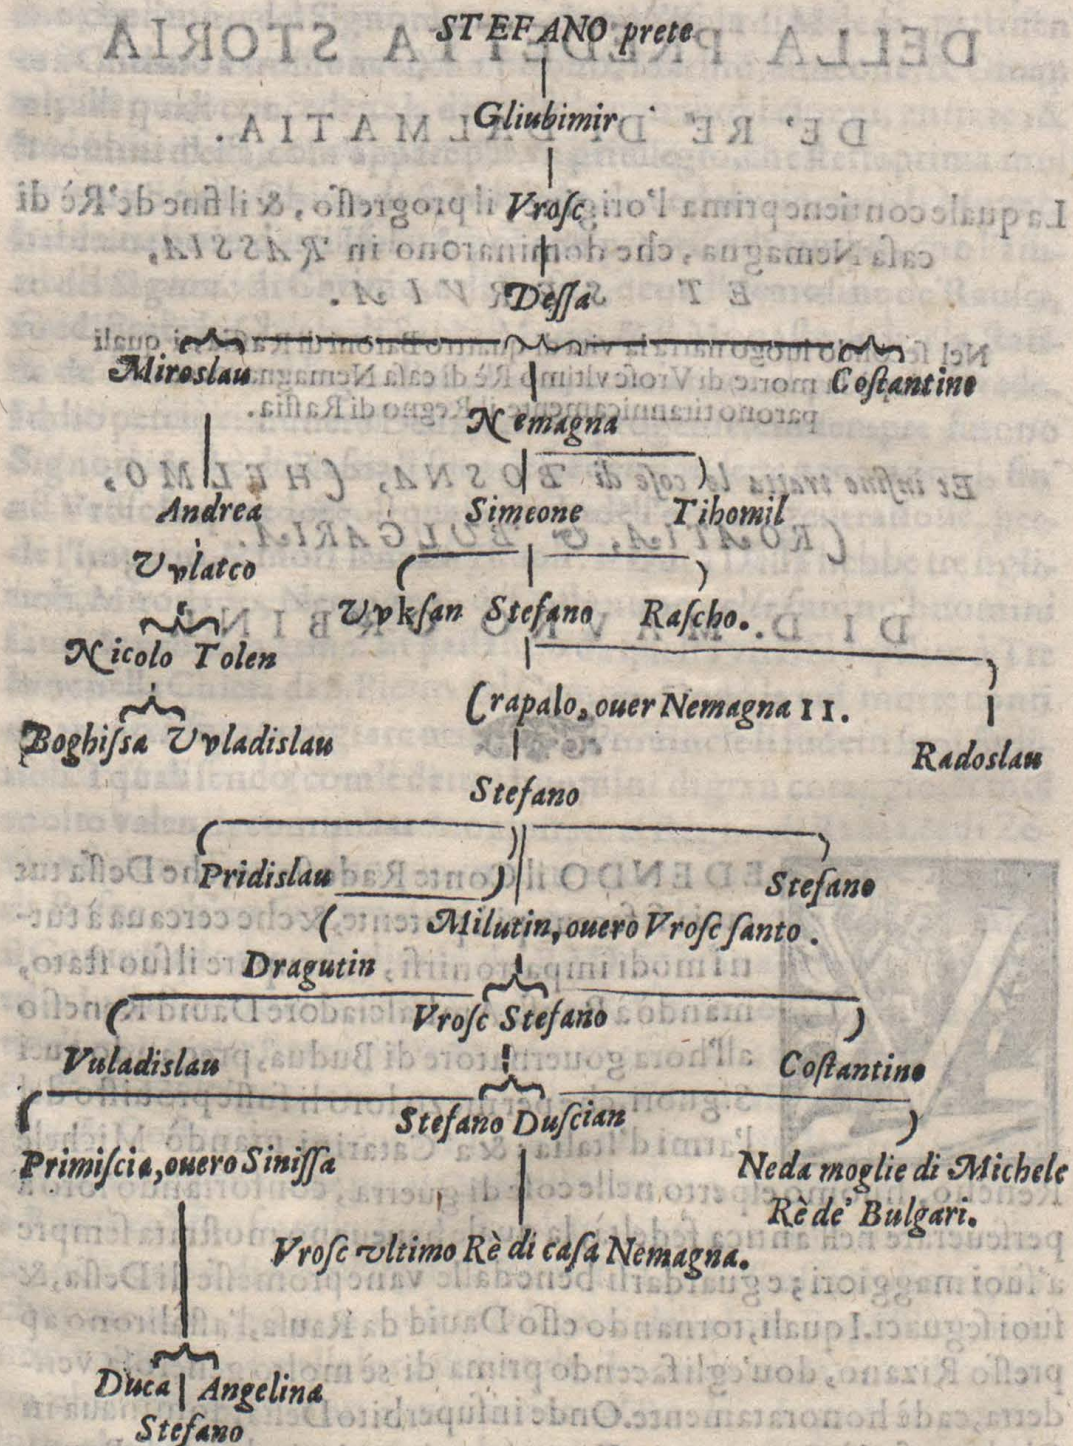 STEFANO prete
Gliubimir
Vroſc
Deſſa
Miroslau
Coſtantino
Nemagna
Andrea
Simeone Tihomil
Vvlatco
Vvkſan Stefano Raſcho.
Nicolo Tolen
Crapalo, ouer Nemagna II.
Boghiſsa Vvladislau
Radoslau
Stefano
Pridislau
Stefano
Milutin, ouero Vroſc ſanto.
Dragutin
Vroſc Stefano
Vuladislau
Coſtantino
Stefano Duſcian
Primiſcia, ouero Siniſſa
Neda moglie di Michele
Rè de' Bulgari.
Vroſc vltimo Rè di caſa Nemagna.
Duca Angelina
Stefano